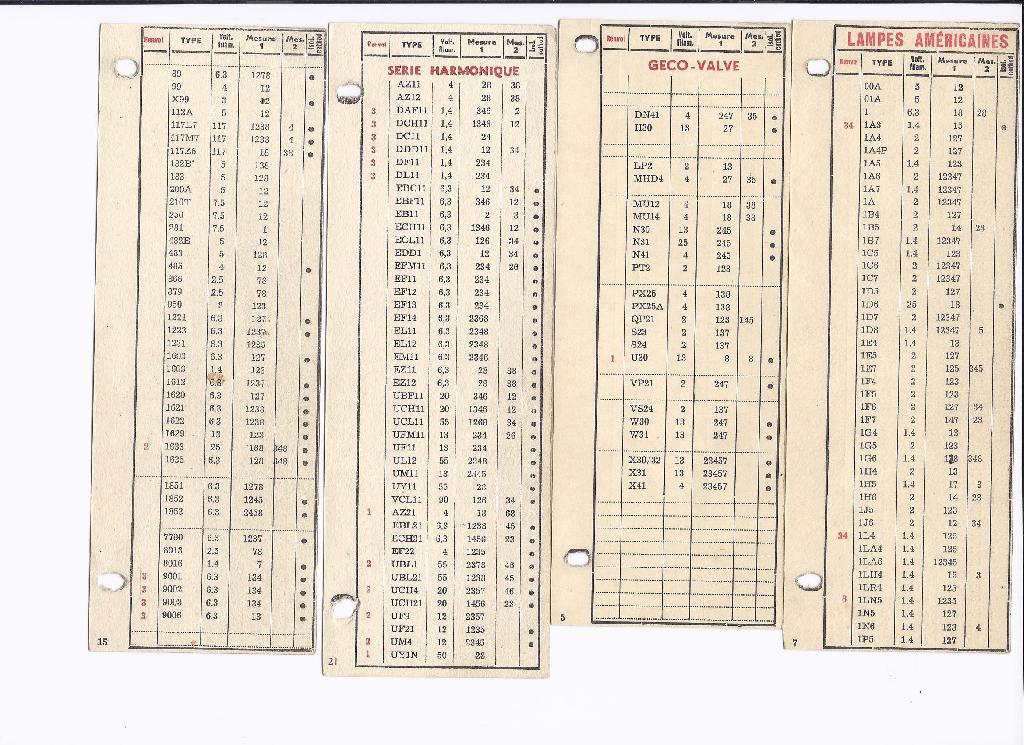 Renvoi TYPE Volt. filam. Mesure 1 Mes. 2
89 6.3 1278
99 4 12
X99 3 12
112A 5 12
117L7 117 1238 4
117M7 117 1238 4
117Z6 117 18 38
182B 5 138
183 5 128
200A 5 12
210T 7.5 12
250 7.5 12
281 7.5 1
482B 5 12
483 5 128
485 4 12
866 2.5 78
879 2.5 78
950 2 123
1221 6.3
1223 6.3 1237
1231 6.3 1235
1603 6.3 127
1609 1.4 123
1612 6.3 1237
1620 6.3 127
1621 6.3 1238
1622 6.3 1238
1629 13 123
2 1633 25 168 348
1635 6.3 128 348
1851 6.3 1278
1852 6.3 1245
1853 6.3 2458
7700 6.3 1237
8013 2.5 78
8016 1.4 7
3 9001 6.3 134
3 9002 6.3 134
3 9003 6.3 134
3 9006 6.3 13
15
Renvoi TYPE Volt. filam. Mesure 1 Mes. 2
SERIE HARMONIQUE
AZ11 4 28 38
AZ12 4 28 38
3 DAF11 1,4 346 2
3 DCH11 1,4 1346 12
3 DC11 1,4 24
3 DDD11 1,4 12 34
3 DF11 1,4 234
3 DL11 1,4 234
EBC11 6,3 12 34
EBF11 6,3 346 12
EB11 6,3 2 3
ECH11 6,3 1346 12
ECL11 6,3 126 34
EDD1 6,3 12 34
EFM11 6,3 234 26
EF11 6,3 234
EF12 6,3 234
EF13 6,3 234
EF14 6,3 2368
EL11 6,3 2348
EL12 6,3 2348
EM11 6,3 2346
EZ11 6,3 28 38
EZ12 6,3 28 38
UBF11 20 346 12
UCH11 20 1346 12
UCL11 55 1268 34
UFM11 13 234 26
UF11 13 234
UL12 55 2348
UM11 13 2346
UY11 55 23
VCL11 90 126 34
1 AZ21 4 13 68
EBL21 6,3 1238 45
ECH21 6,3 1456 23
EF22 4 1235
2 UBL1 55 2378 46
UBL21 55 1238 45
2 UCH4 20 2357 46
UCH21 20 1456 23
2 UF9 12 2357
UF21 12 1235
2 UM4 12 2345
1 UY1N 50 28
21
Renvoi TYPE Volt. filam. Mesure 1 Mes. 2
GECO-VALVE
DN41 4 247 35
H30 13 27
LP2 2 13
MHD4 4 27 35
MU12 4 18 38
MU14 4 18 38
N30 13 245
N31 25 245
N41 4 245
PT2 2 123
PX25 4 138
PX25A 4 138
QP21 2 123 145
S23 2 137
S24 2 137
1 U30 13 8 8
VP21 2 247
VS24 2 137
W30 13 247
W31 13 247
X30/32 13 23457
X31 13 23457
X41 4 23457
5
LAMPES AMÉRICAINES
Renvoi TYPE Volt. filam. Mesure 1 Mes. 2
00A 5 12
01A 5 12
1 6.3 18 28
34 1A3 1.4 15
1A4 2 127
1A4P 2 127
1A5 1.4 123
1A6 2 12347
1A7 1.4 12347
1A 2 12347
1B4 2 127
1B5 2 14 23
1B7 1.4 12347
1C5 1.4 123
1C6 2 12347
1C7 2 12347
1D5 2 127
1D6 25 18
1D7 2 12347
1D8 1.4 12347 5
1E4 1.4 13
1E5 2 127
1E7 2 125 345
1F4 2 123
1F5 2 123
1F6 2 127 34
1F7 2 147 23
1G4 1.4 13
1G5 2 123
1G6 1.4 128 346
1H4 2 13
1H5 1.4 17 3
1H6 2 14 23
1J5 2 123
1J6 2 12 34
34 1L4 1.4 125
1LA4 1.4 125
1LA6 1.4 12345
1LH4 1.4 15 3
1LB4 1.4 125
8 1LN5 1.4 1235
1N5 1.4 127
1N6 1.4 123 4
1P5 1.4 127
7